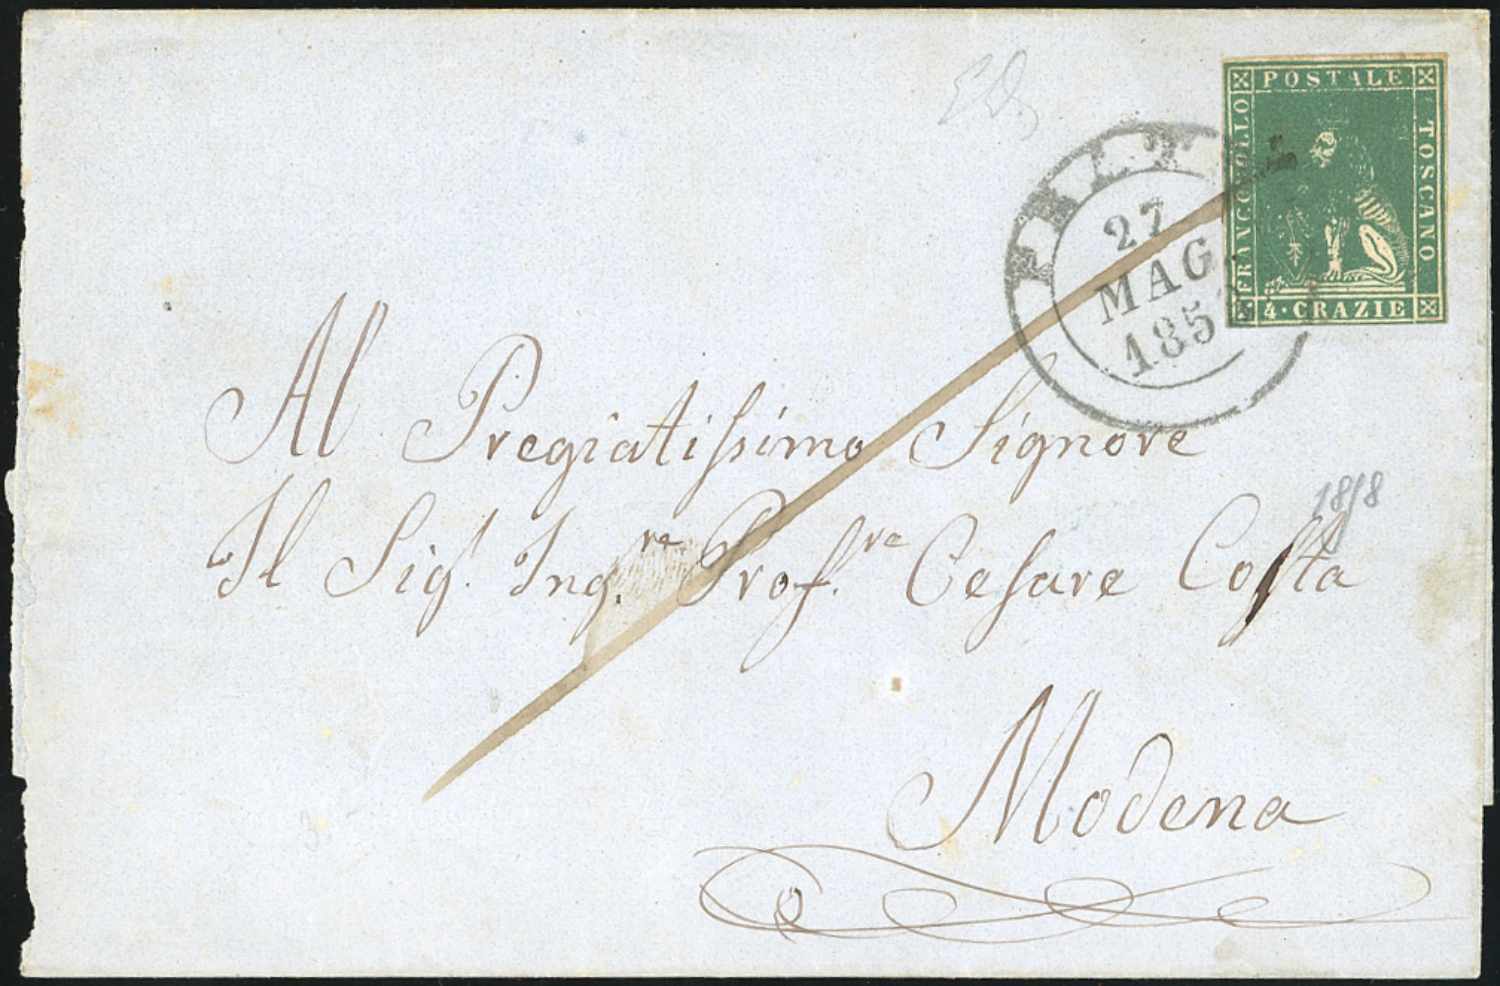 FRANCOBOLLO POSTALE TOSCANO
4 · CRAZIE
27
MAG
185
Al Pregiatissimo Signore
Il Sig.r Ing.re Prof.re Cesare Costa
1858
Modena